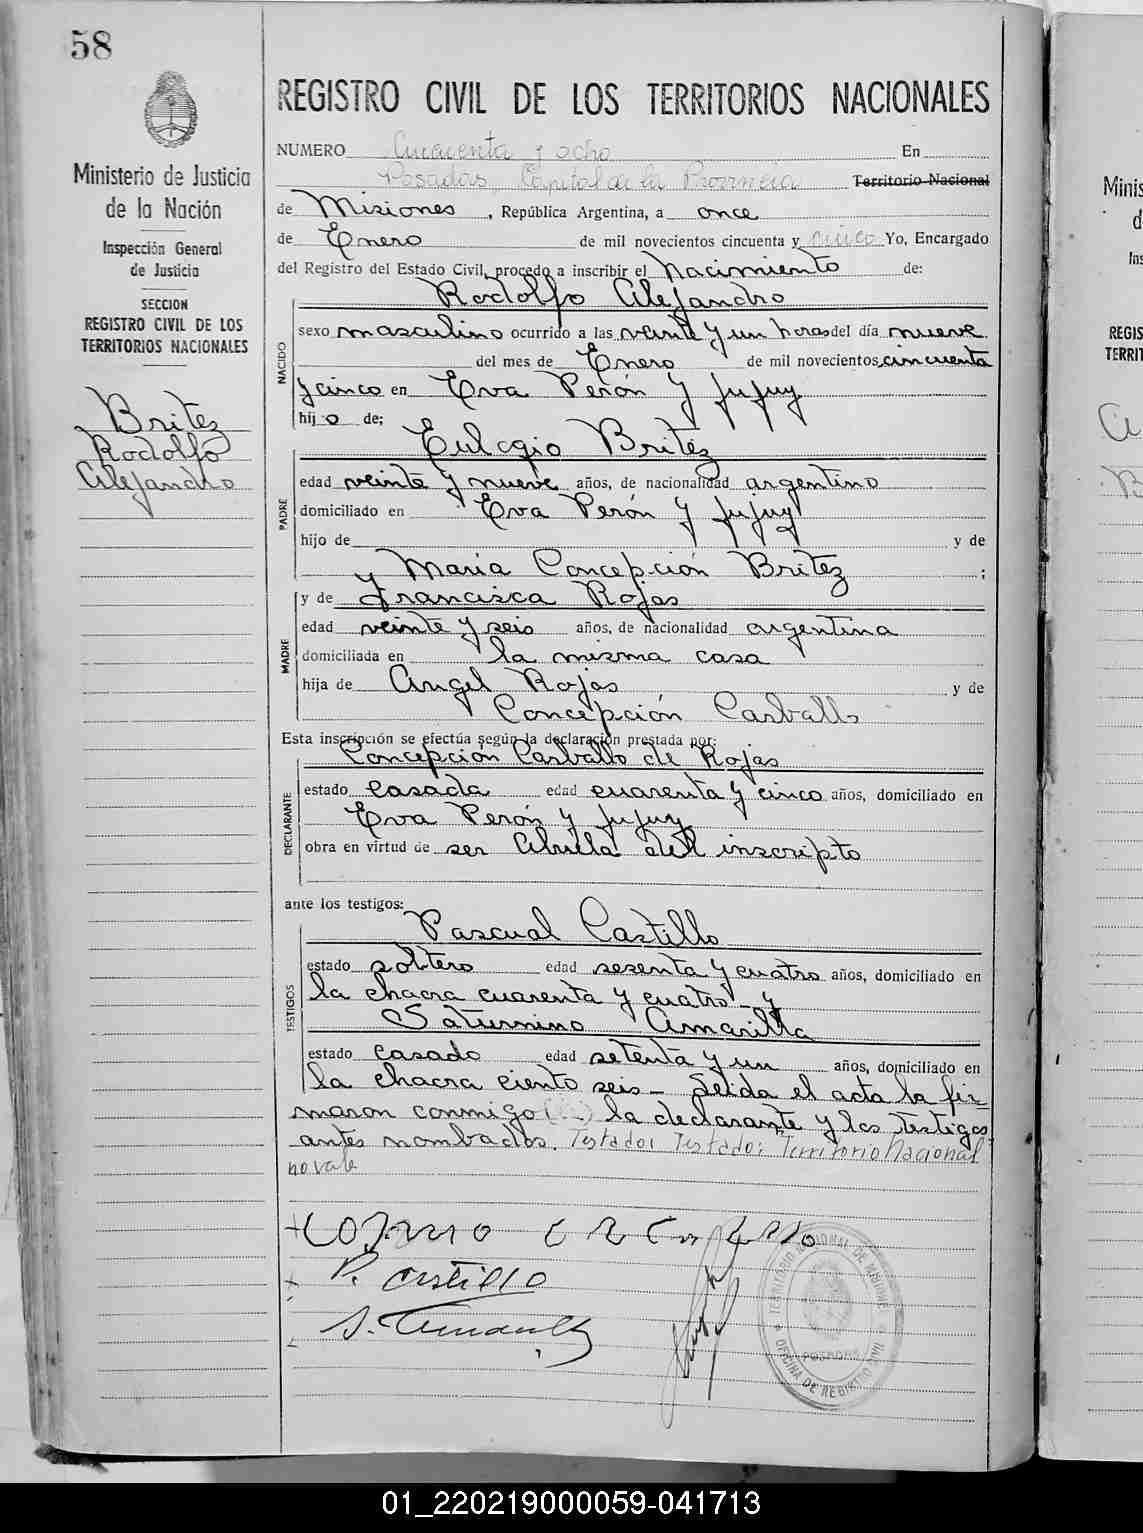 58
Ministerio de Justicia
de la Nación
Inspección General
de Justicia
SECCION
REGISTRO CIVIL DE LOS
TERRITORIOS NACIONALES
Britez
Rodolfo
Alejandro
REGISTRO CIVIL DE LOS TERRITORIOS NACIONALES
NUMERO Cincuenta y ocho En
Posadas, Capital de la Provincia Territorio Nacional
de Misiones, República Argentina, a once
de Enero de mil novecientos cincuenta y cinco Yo, Encargado
del Registro del Estado Civil, procedo a inscribir el nacimiento de:
Rodolfo Alejandro
NACIDO
sexo masculino ocurrido a las veinte y un horas del día nueve
del mes de Enero de mil novecientos cincuenta
y cinco en Eva Perón y Jujuy
hijo de;
Eulogio Britez
PADRE
edad veinte y nueve años, de nacionalidad argentino
domiciliado en Eva Perón y Jujuy
hijo de y de
María Concepción Britez ;
y de Francisca Rojas
MADRE
edad veinte y seis años, de nacionalidad argentina
domiciliada en la misma casa
hija de Angel Rojas y de
Concepción Carballo
Esta inscripción se efectúa según la declaración prestada por:
Concepción Carballo de Rojas
DECLARANTE
estado casada edad cuarenta y cinco años, domiciliado en
Eva Perón y Jujuy
obra en virtud de ser Abuela del inscripto
ante los testigos:
Pascual Castillo
TESTIGOS
estado soltero edad sesenta y cuatro años, domiciliado en
la chacra cuarenta y cuatro - y
Saturnino Amarilla
estado casado edad setenta y un años, domiciliado en
la chacra ciento seis - Leida el acta la fir-
maron conmigo la declarante y los testigos
antes nombados. Testado: Testado: Territorio Nacional
no vale
P. Castillo
S. Amarilla
TERRITORIO NACIONAL DE MISIONES
POSADAS
OFICINA DE REGISTRO CIVIL
Minis
d
Ins
REGIS
TERRIT
01_220219000059-041713